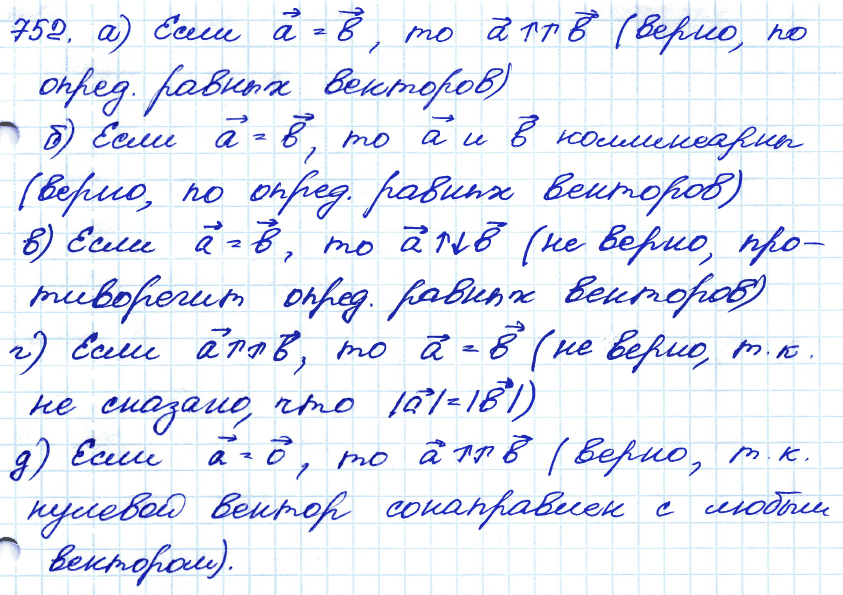 752. а) Если a⃗ = b⃗, то a⃗ ↑↑ b⃗ (верно, по
опред. равных векторов)
б) Если a⃗ = b⃗, то a⃗ и b⃗ коллинеарны
(верно, по опред. равных векторов)
в) Если a⃗ = b⃗, то a⃗ ↑↓ b⃗ (не верно, про-
тиворечит опред. равных векторов)
г) Если a⃗ ↑↑ b⃗, то a⃗ = b⃗ (не верно, т.к.
не сказано, что |a⃗| = |b⃗|)
д) Если a⃗ = o⃗, то a⃗ ↑↑ b⃗ (верно, т.к.
нулевой вектор сонаправлен с любым
вектором).